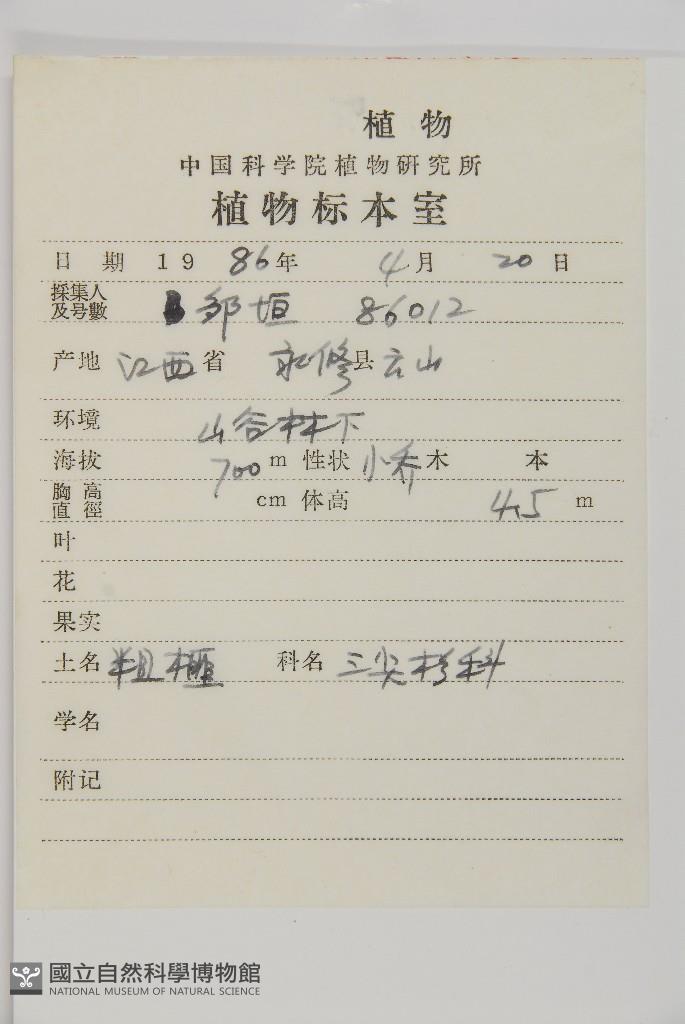 植物
中国科学院植物研究所
植物标本室
日期 1986年 4月 20日
採集人及号數 邹垣 86012
产地 江西省 永修县云山
环境 山谷林下
海拔 700 m 性状 小乔木 本
胸高直徑 cm 体高 4.5 m
叶
花
果实
土名 粗榧 科名 三尖杉科
学名
附记
國立自然科學博物館
NATIONAL MUSEUM OF NATURAL SCIENCE